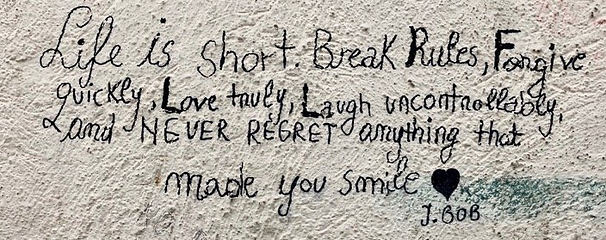 Life is short. Break Rules, Forgive
quickly, Love truly, Laugh uncontrollably,
and NEVER REGRET anything that
made you smile ♥
J.BOB